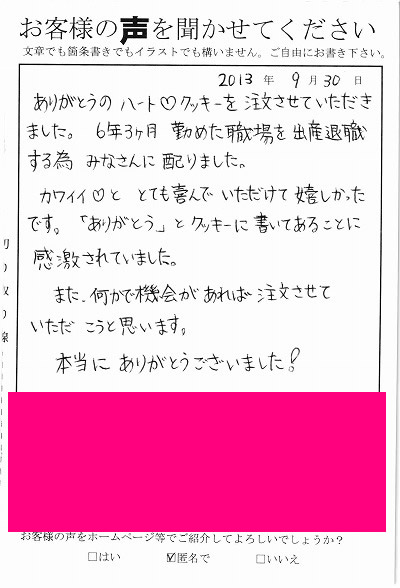 お客様の声を聞かせてください
文章でも箇条書きでもイラストでも構いません。ご自由にお書き下さい。
2013 年 9 月 30 日
ありがとうの ハート♡クッキーを 注文させていただき
ました。 6年3ヶ月 勤めた職場を出産退職
する為 みなさんに 配りました。
カワイイ♡と とても喜んで いただけて 嬉しかった
です。「ありがとう」と クッキーに書いてあることに
感激されていました。
また、何かで機会があれば 注文させて
いただ こうと思います。
本当に ありがとうございました！
切り取り線
お客様の声をホームページ等でご紹介してよろしいでしょうか？
□はい ☑匿名で □いいえ